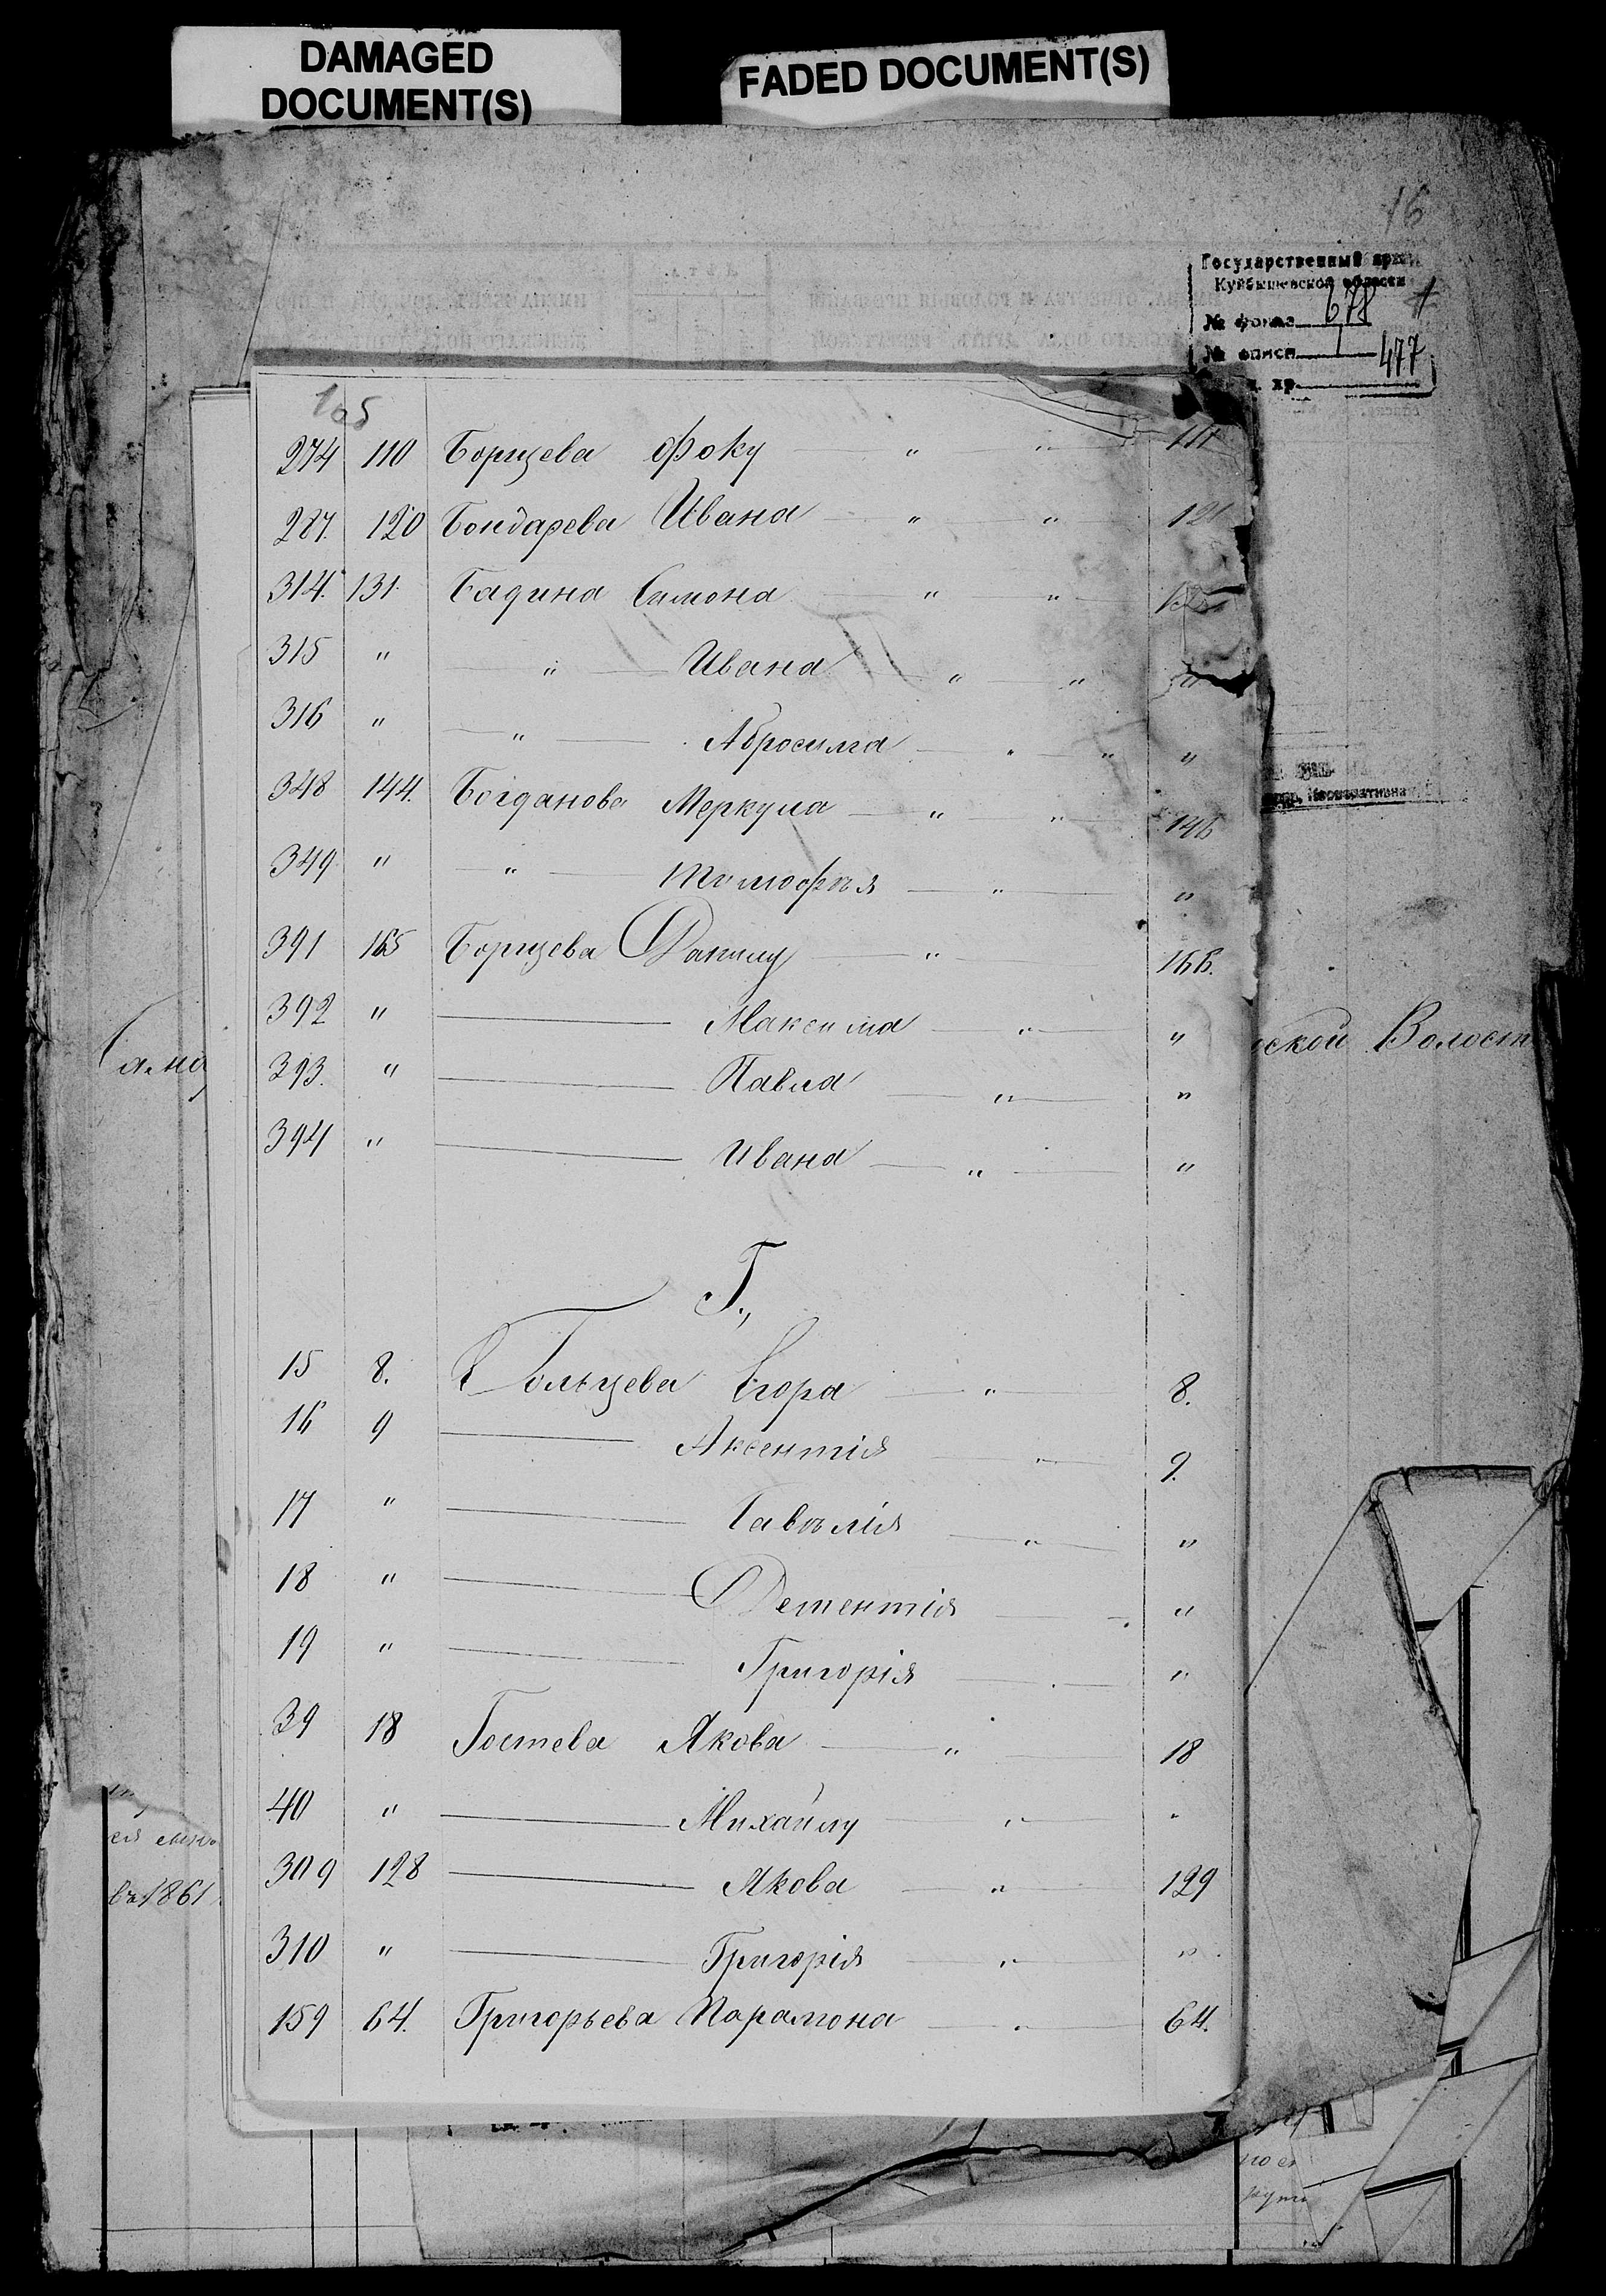 DAMAGED
DOCUMENT(S)
FADED DOCUMENT(S)
16
Государственный архив
Куйбышевской области
№ фонда 678
№ описи 1
ед. хр. 477
105
274 110 Борщева Фоку " " 111
287. 120 Бондарева Ивана " " 121
314. 131. Бадина Симона " "
315 " " Ивана " " "
316 " " Абросима " " "
348 144. Богданова Меркула " " 146
349 " " Тимофѣя " "
391 165 Борщева Данилу " 166.
392 " Максима " "
393. " Павла " "
394 " Ивана " "
Г.,
15 8. Гольцева Егора " 8.
16 9 Аксентія " 9.
17 " Гавѣлія " "
18 " Дементія "
19 " Григорія "
39 18 Гостева Якова " 18
40 " Михайлу " "
309 128 Якова " 129
310 " Григорія " "
159 64. Григорьева Парамона " 64.
ской Волост
въ 1861